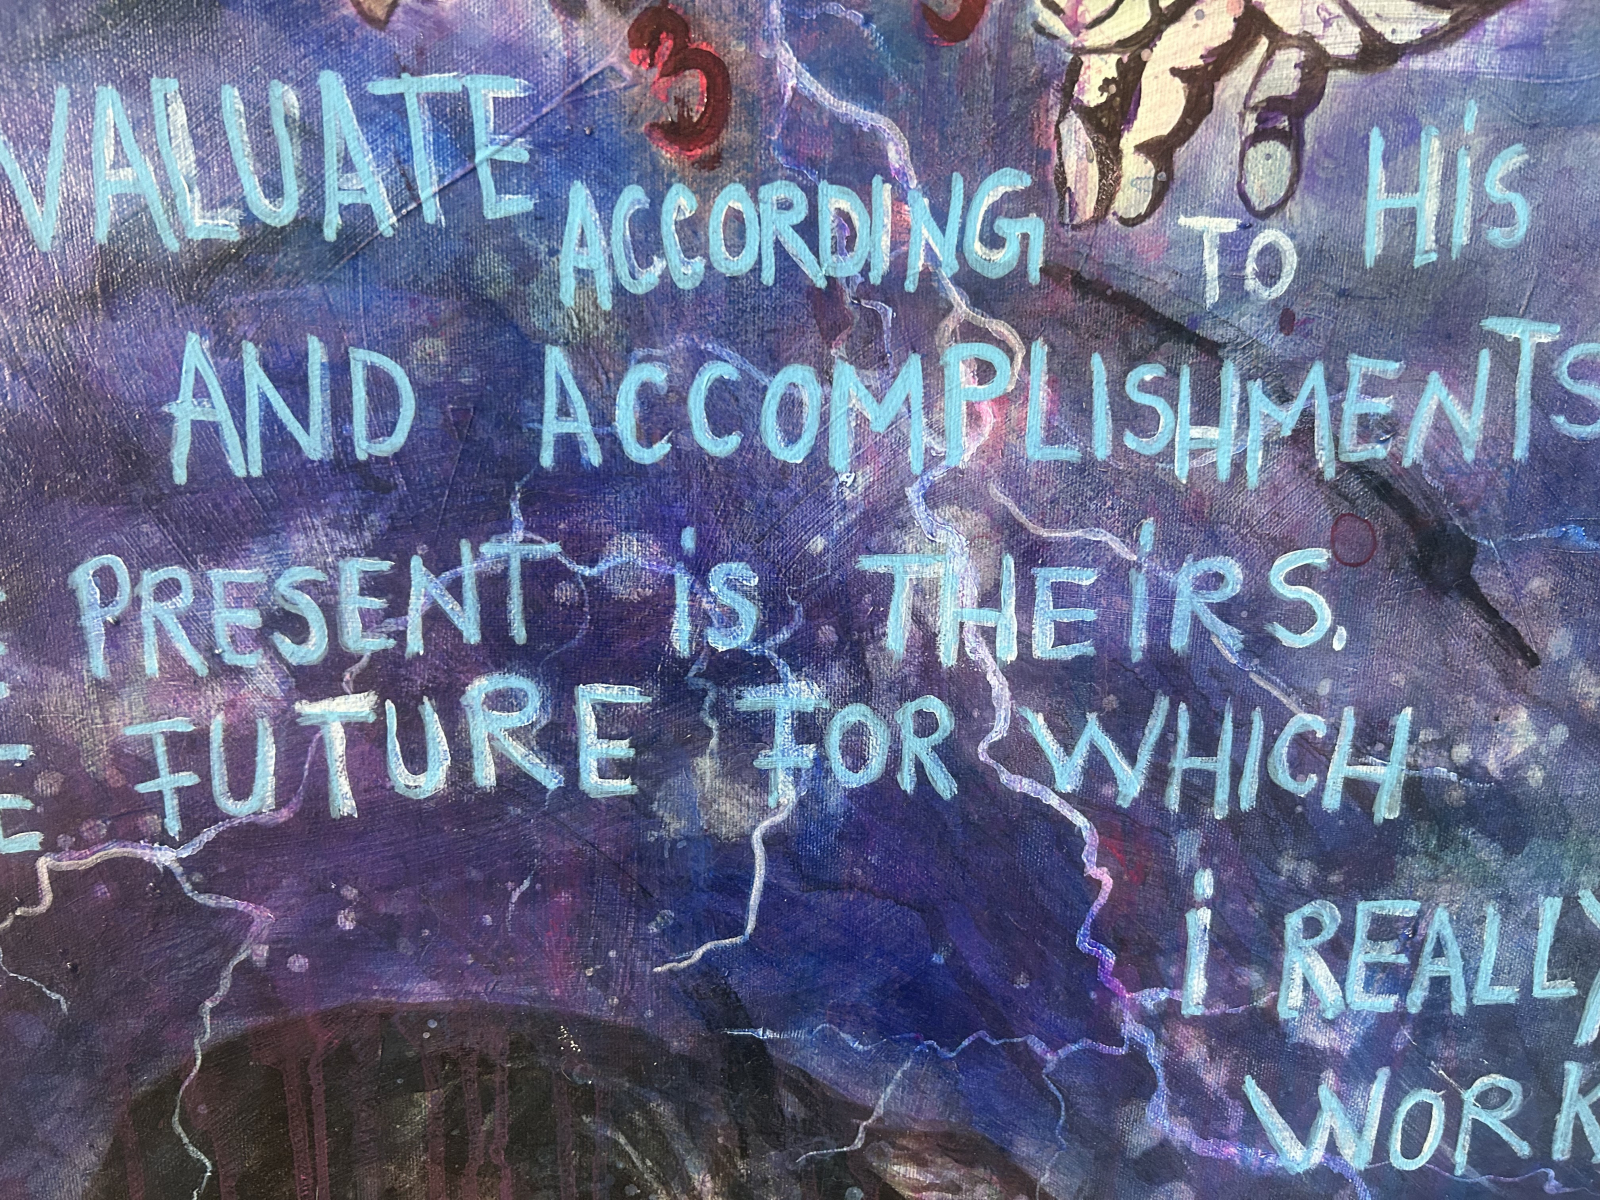 3
VALUATE ACCORDING TO HiS
AND ACCOMPLISHMENTS
PRESENT is THEiRS.
FUTURE FOR WHICH
i REALLY
WORK